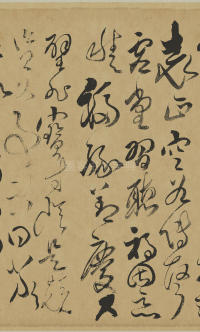 表正空谷傳聲
虛堂習聽禍因惡
積福緣善慶尺
璧非寶寸陰是競
資父事君曰嚴